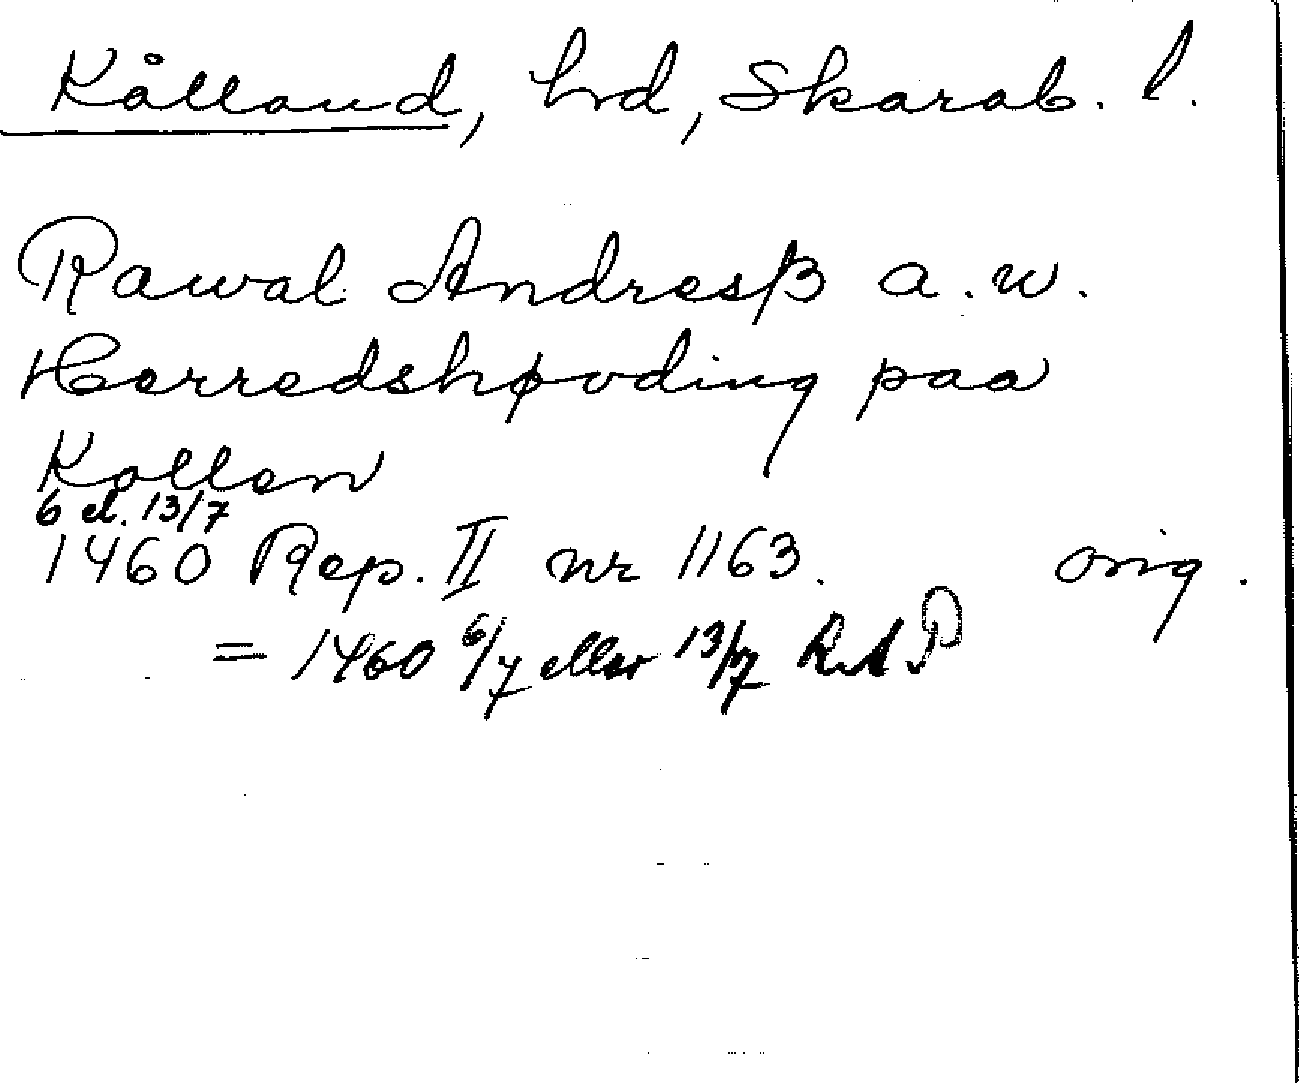 Kålland, hrd, Skarab. l.
Rawal Andresß a.w.
Herredshøvding paa
Kollen
6 el. 13/7
1460 Rep. II nr 1163. orig.
= 1460 6/7 eller 13/7 RAP